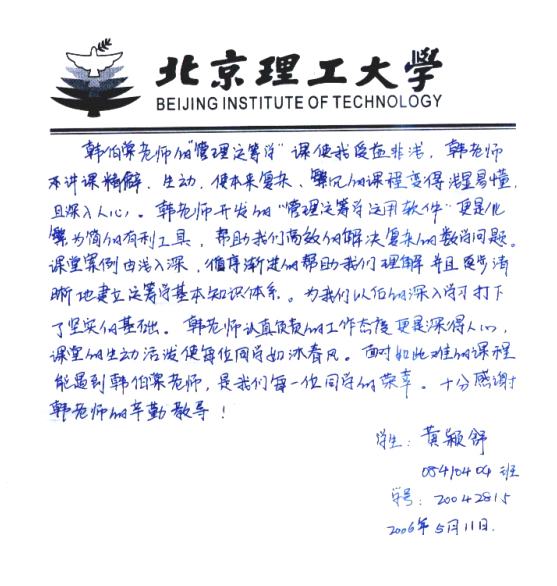 北京理工大学
BEIJING INSTITUTE OF TECHNOLOGY
韩伯棠老师的“管理运筹学”课使我受益非浅，韩老师
讲课精解、生动，使本来复杂、繁冗的课程变得浅显易懂，
且深入人心。韩老师开发的“管理运筹学运用软件”更是化
繁为简的有利工具，帮助我们高效的解决复杂的数学问题。
课堂案例由浅入深，循序渐进的帮助我们理解并且逐步清
晰地建立运筹学基本知识体系。为我们以后的深入学习打下
了坚实的基础。韩老师认真负责的工作态度更是深得人心，
课堂的生动活泼使每位同学如沐春风。面对如此难的课程
能遇到韩伯棠老师，是我们每一位同学的荣幸。十分感谢
韩老师的辛勤教导！
学生：黄颖舒
05410404 班
学号：20042815
2006年5月11日.